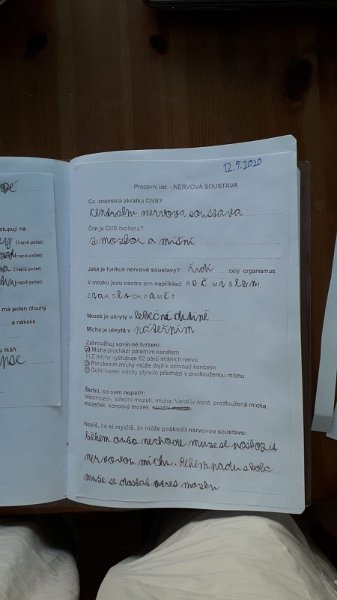 12.5.2020
Pracovní list - NERVOVÁ SOUSTAVA
Co znamená zkratka CNS?
centrální nervova soustava
Čím je CNS tvořena?
z mozkou a míšní
Jaká je funkce nervové soustavy? řídí celý organismus
V mozku jsou centra pro například: ŘEČ MYŠLEM
ZRAK SLACH PAMĚT
Mozek je ukrytý v lebeční dutině
Mícha je ukrytá v páteřním
Zakroužkuj správné tvrzení:
Mícha prochází páteřním kanálem.
Z míchy vystupuje 52 párů míšních nervů
Porušením míchy může dojít k ochrnutí končetin
Dolní konec míchy plynule přechází v prodlouženou míchu
Škrtni, co sem nepatří:
Mezimozek, střední mozek, mícha, Varolův most, prodloužená mícha
mozeček, koncový mozek,
Napiš, co si myslíš, že může poškodit nervovou soustavu:
během nehode muse se
nervovou míchu. během padu s kola
muse se mozku
stupují na
(napiš počet)
(napiš počet)
(napiš počet)
(napiš počet)
má jeden dlouhý
a několik